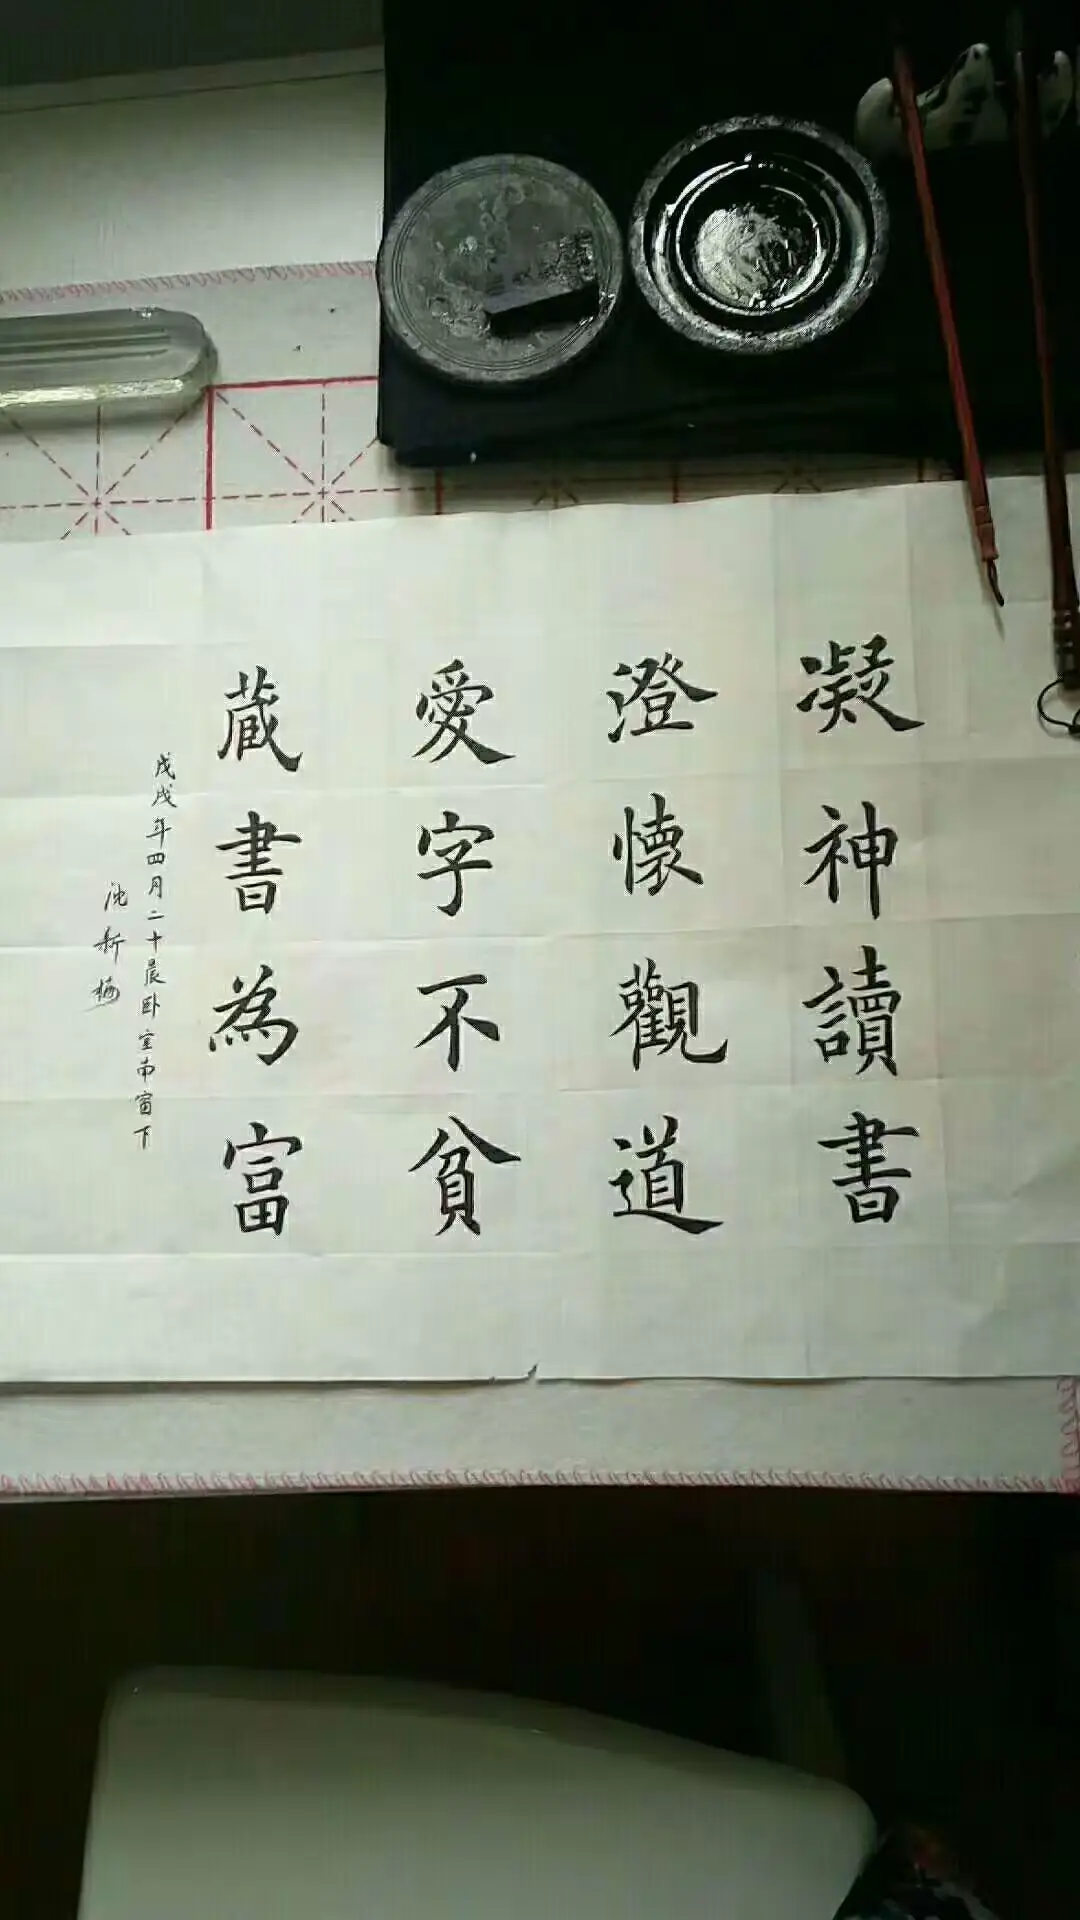 凝神讀書
澄懷觀道
愛字不貧
蔵書為富
戊戌年四月二十晨卧室南窗下
沈新梅